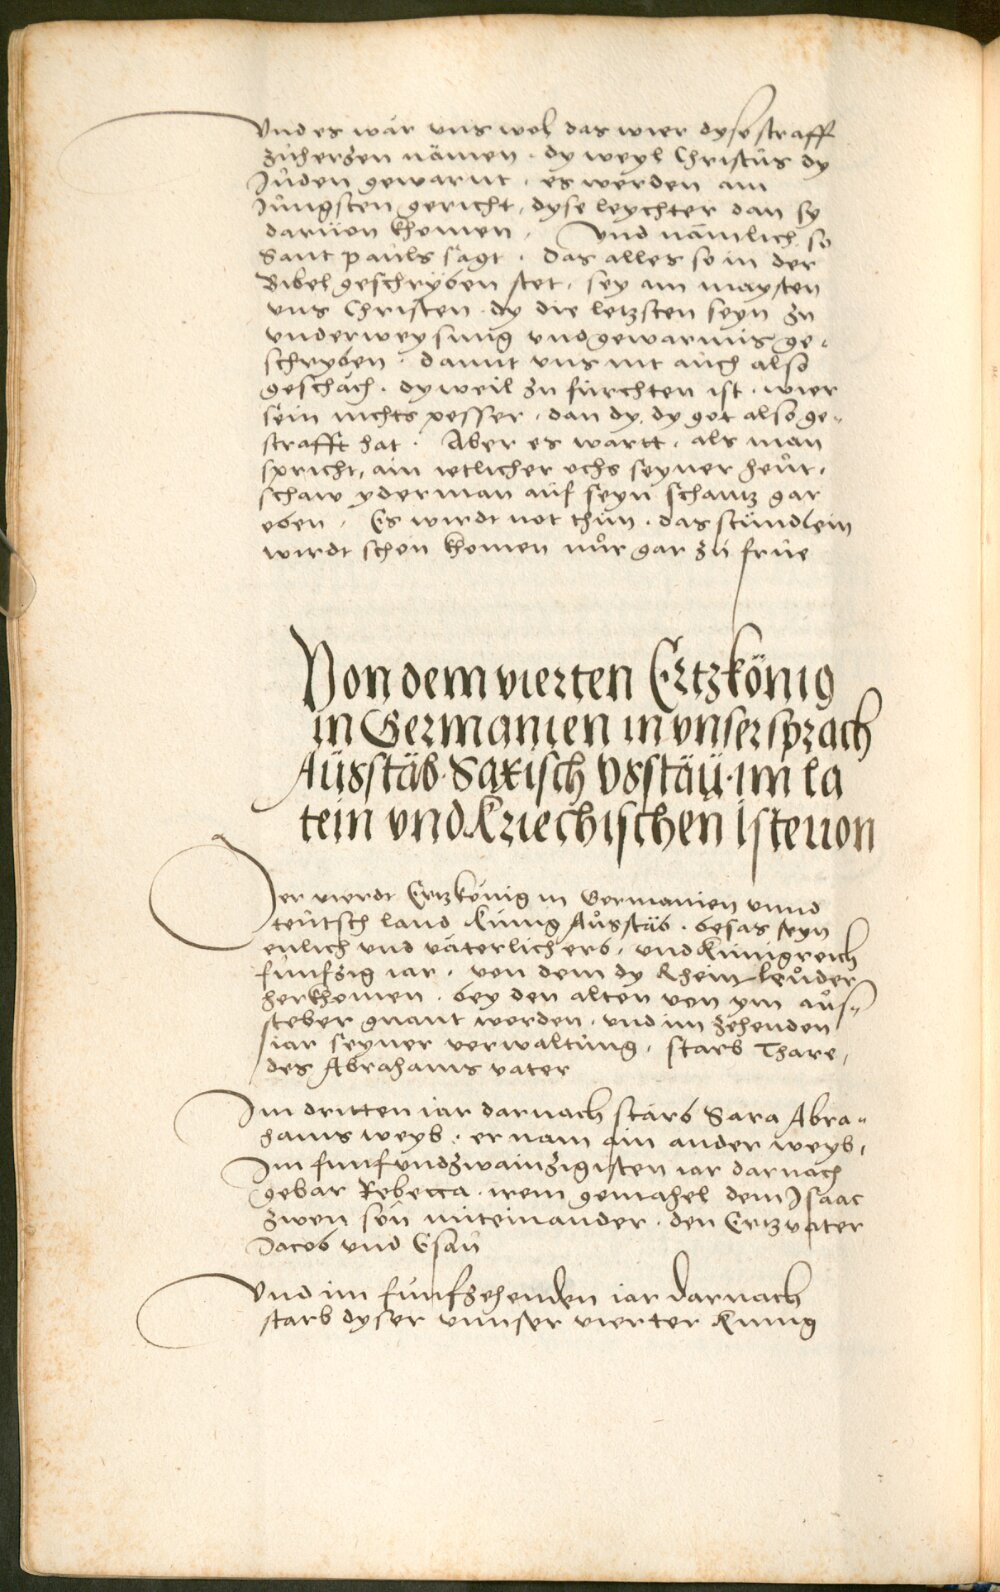 Und es wär uns wol das wier dyse straff
zúherzen nämen · dy weyl Christus dy
Júden gewarnt · es werden am
Júngsten gericht, dyse leychter dan sy
daruon khomen · Und nämlich so
Sant pauls sagt · das alles so in der
Bibel geschryben stet · sey am maysten
uns Christen · dy die letzsten seyn zu
underweysung und gewarnús ge-
schryben · damit uns nit aúch also
geschách · dyweil zu fúrchten ist · wier
sein nichts pesser · dan dy, dy got also ge-
strafft hat · Aber es wartt, als man
spricht, ain ietlicher ochs seyner heůt ·
schaw yderman aúf seyn schantz gar
eben · Es wirdt not thún · das stúndlein
wirdt schon khomen nůr gar zú frúe
Von dem vierten Ertzkönig
in Germanien in unser sprach
Aüsstäb · Saxisch Usstäü · im la
tein und Kriechischen Isteuon
Der vierdt Ertzkönig in Germanien unnd
teütsch land Kúnig Aůsstäb · besas seyn
enlich und väterlich erb · und Kúnigreich
fúnfzig iar · von dem dy Rheinleůder
herkhomen · bey den alten von ym aůs-
steber gnant worden · und im zehenden
iar seyner verwaltúng · starb Thare,
des Abrahams vater
Im dritten iar darnach starb Sara Abra-
hams weyb · er nam ain ander weyb ·
Im funfundzwainzigisten iar darnach
gebar Rebecca · irem gemahel dem Isaac
zwen sön miteinander · den Ertzvater
Jacob und Esaú
Und im fúnfzehenden iar darnach
starb dyser unnser vierter Kúnig